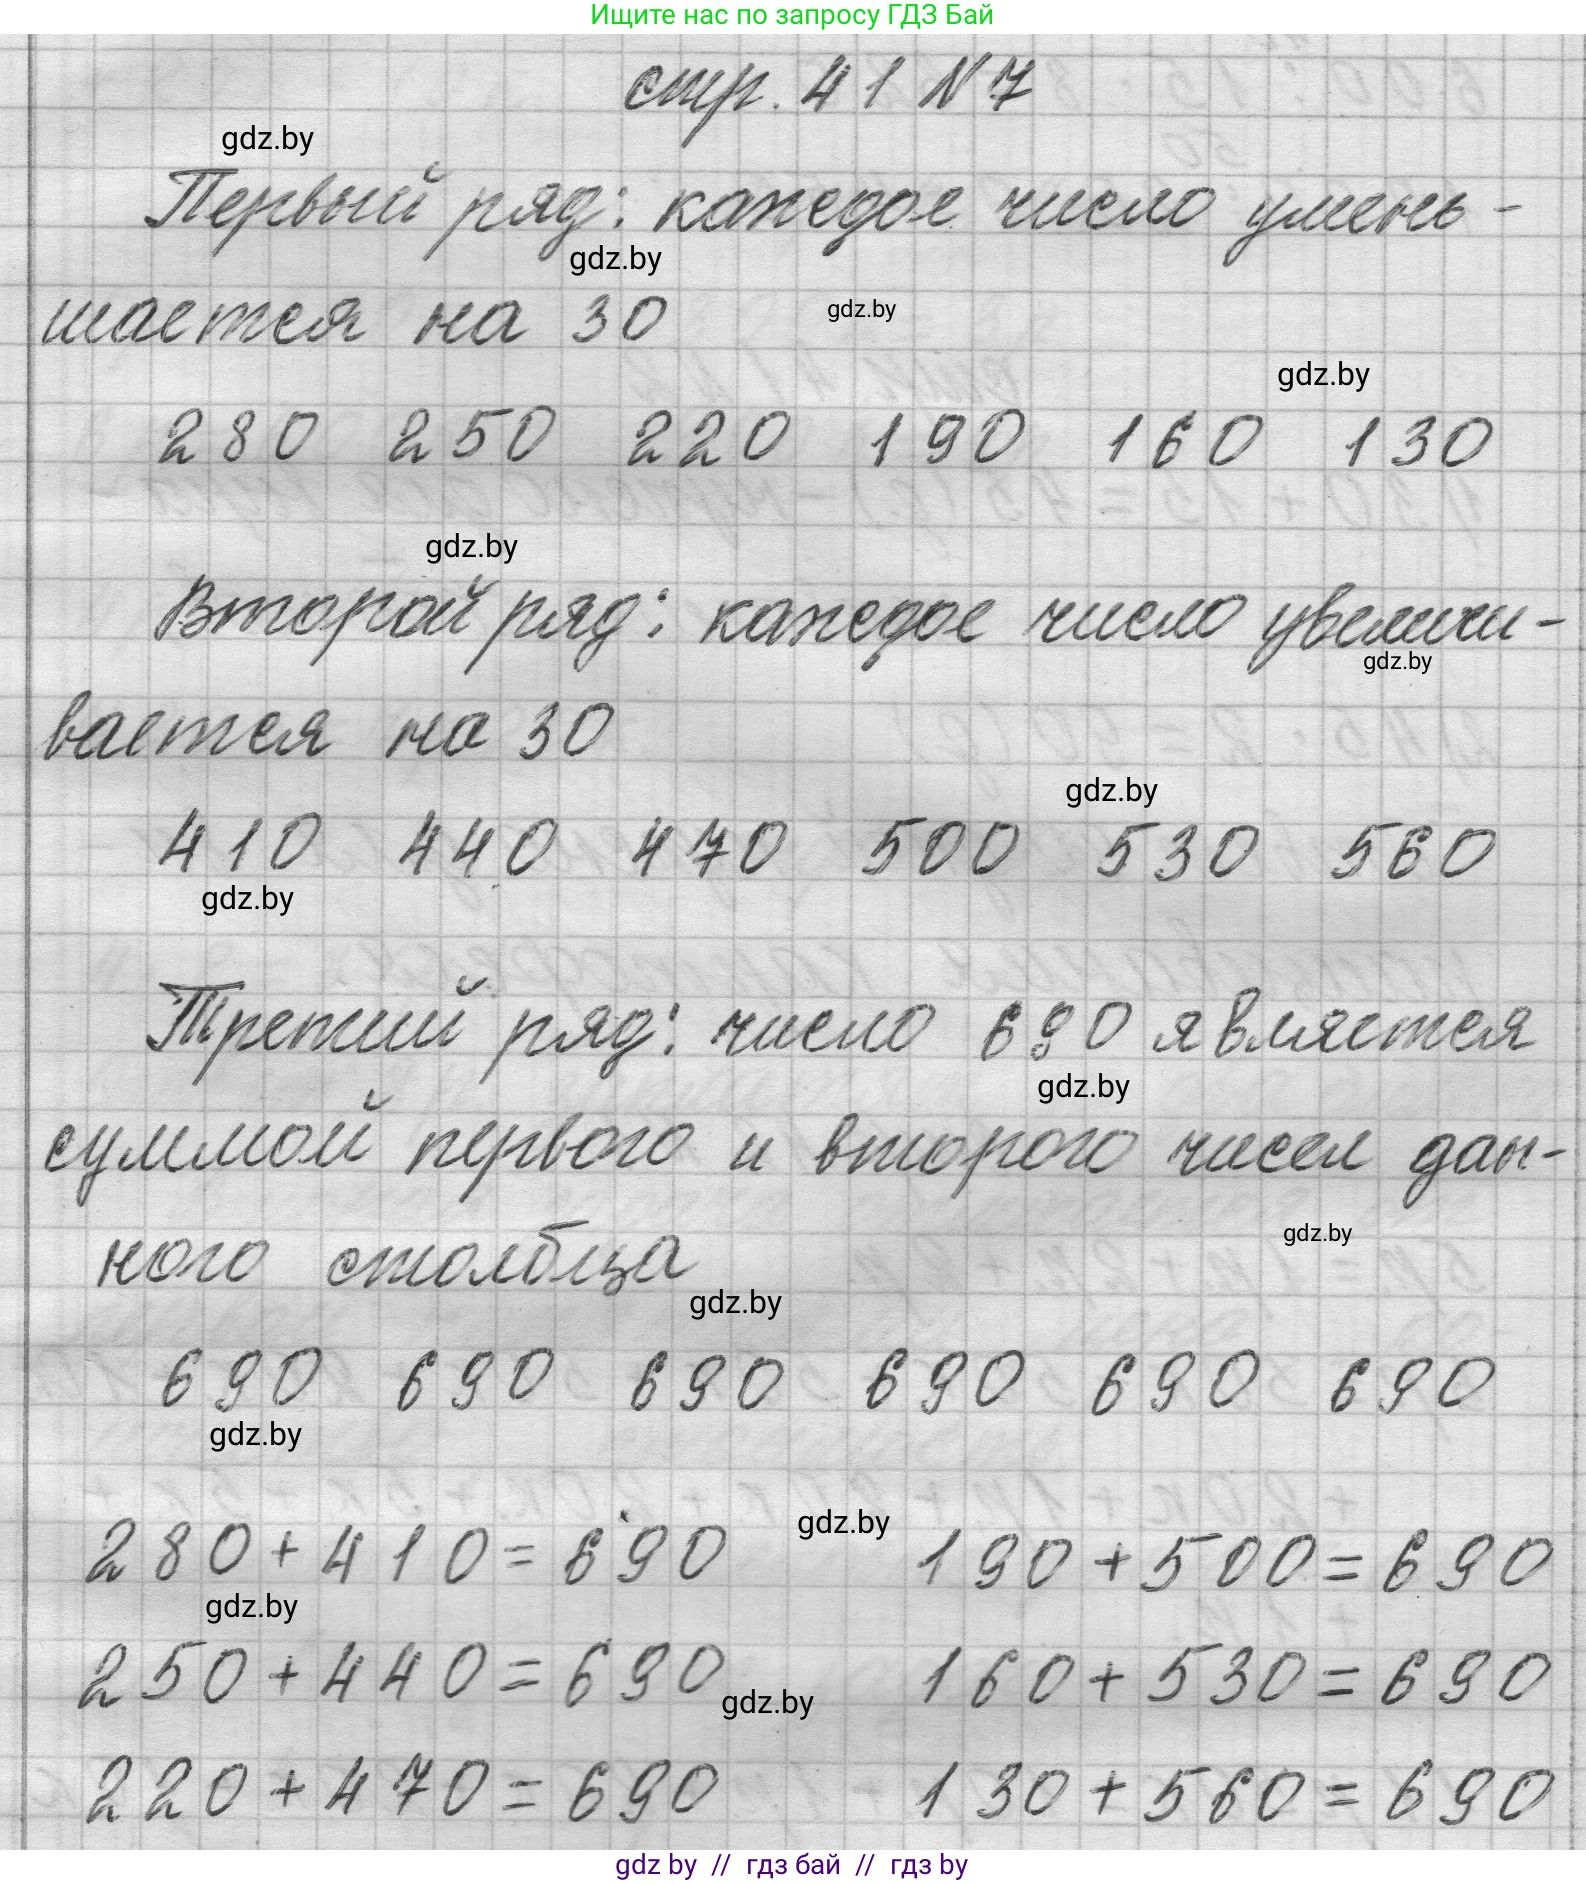 Ищите нас по запросу ГДЗ Бай
стр. 41 № 7
gdz.by
Первый ряд: каждое число умень-
gdz.by
шается на 30
gdz.by
gdz.by
280 250 220 190 160 130
gdz.by
Второй ряд: каждое число увеличи-
gdz.by
вается на 30
gdz.by
410 440 470 500 530 560
gdz.by
Третий ряд: число 690 является
gdz.by
суммой первого и второго чисел дан-
gdz.by
ного столбца
gdz.by
690 690 690 690 690 690
gdz.by
gdz.by
280 + 410 = 690 190 + 500 = 690
gdz.by
250 + 440 = 690 160 + 530 = 690
gdz.by
220 + 470 = 690 130 + 560 = 690
gdz by // гдз бай // гдз by